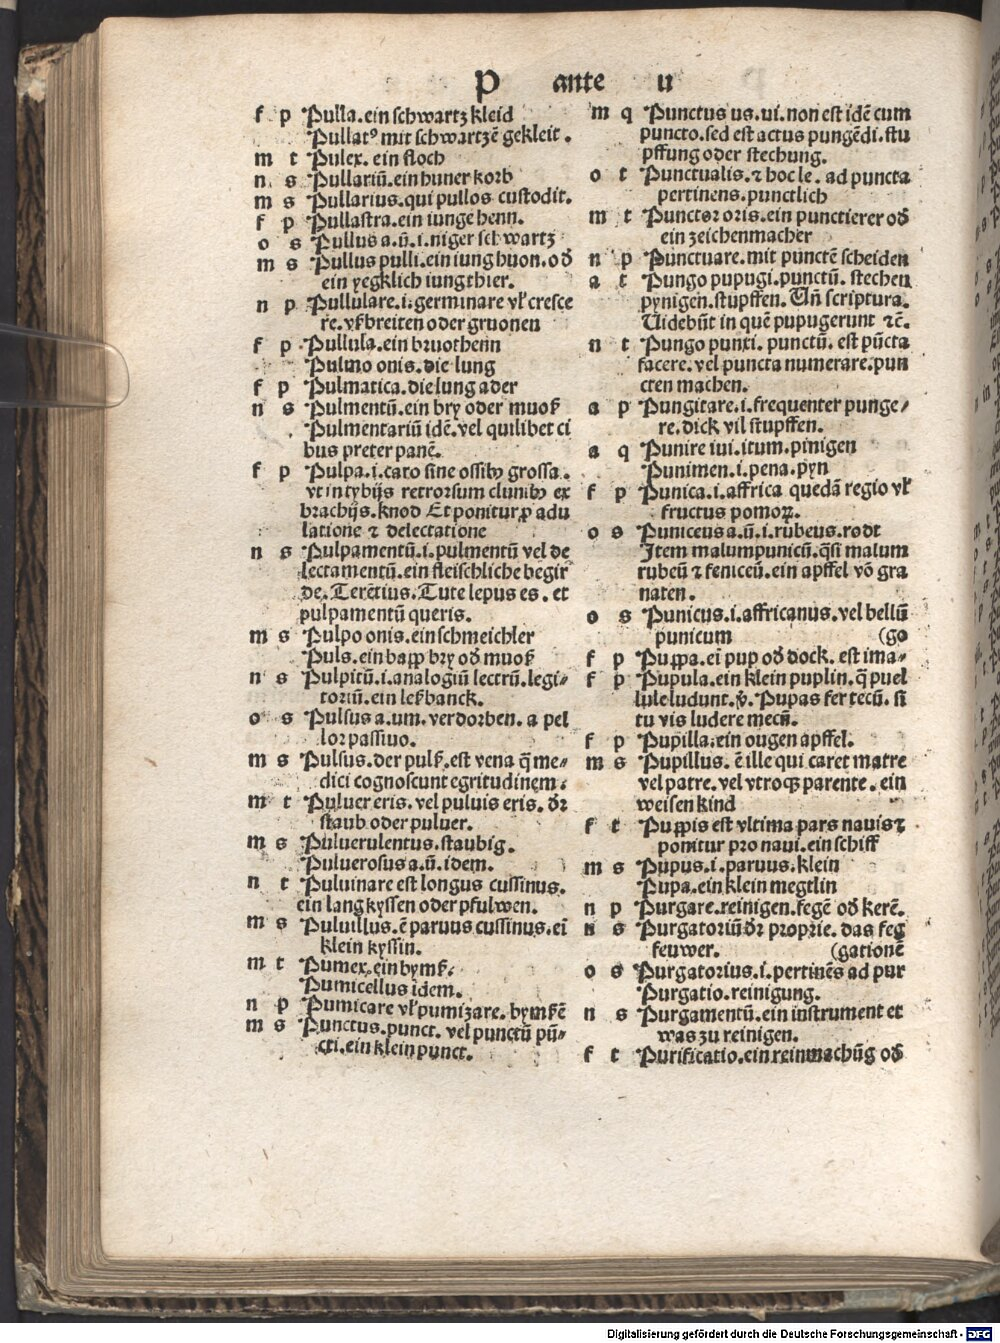 P ante u
f p Pulla. ein schwartz kleid
Pullatꝰ mit schwartzē gekleit.
m t Pulex. ein floch
n s Pullariū. ein huner korb
m s Pullarius. qui pullos custodit.
f p Pullastra. ein iunge henn.
o s Pullus a. ū. i. niger schwartz
m s Pullus pulli. ein iung huon. od̕
ein yegklich iung thier.
n p Pullulare. i. germinare vl̕ cresce
re. v̕breiten oder gruonen
f p Pullula. ein bruothenn
Pulmo onis. die lung
f p Pulmatica. die lung ader
n s Pulmentū. ein bry oder muoß
Pulmentariū idē. vel quilibet ci
bus preter panē.
f p Pulpa. i. caro sine ossibꝰ grossa.
vt in tybijs retrorsum clunibꝰ ex
brachijs. knod Et ponitur ꝓ adu
latione ⁊ delectatione
n s Pulpamentū. i. pulmentū vel de
lectamentū. ein fleischliche begir
de. Terētius. Tute lepus es. et
pulpamentū queris.
m s Pulpo onis. ein schmeichler
Puls. ein bapp bry od̕ muoß
n s Pulpitū. i. analogiū lectrū. legi⸗
toriū. ein leßbanck.
o s Pulsus a. um. verdorben. a pel
lor passiuo.
m s Pulsus. der pulß. est vena q̄ me⸗
dici cognoscunt egritudinem.
m t Puluer eris. vel puluis eris. d̕r
staub oder puluer.
m s Puluerulentus. staubig.
Puluerosus a. ū. idem.
n t Puluinare est longus cussinus.
ein lang kyssen oder pfulwen.
m s Puluillus. ē paruus cussinus. ei
klein kyssin.
m t Pumex. ein bymß.
Pumicellus idem.
n p Pumicare vl̕ pumizare. bymßē
m s Punctus. punct. vel punctū pū⸗
cti. ein klein punct.
m q Punctus us. ui. non est idē cum
puncto. sed est actus pungēdi. stu
pffung oder stechung.
o t Punctualis. ⁊ hoc le. ad puncta
pertinens. punctlich
m t Punctor oris. ein punctierer od̕
ein zeichenmacher
n p Punctuare. mit punctē scheiden
a t Pungo pupugi. punctū. stechen
pynigen. stupffen. Uñ scriptura.
Uidebūt in quē pupugerunt ⁊c̄.
n t Pungo punxi. punctū. est pūcta
facere. vel puncta numerare. pun
cten machen.
a p Pungitare. i. frequenter punge⸗
re. dick vil stupffen.
a q Punire iui. itum. pinigen
Punimen. i. pena. pyn
f p Punica. i. affrica quedā regio vl̕
fructus pomoꝝ.
o s Puniceus a. ū. i. rubeus. rodt
Item malumpunicū. q̄si malum
rubeū ⁊ feniceū. ein apffel vō gra
naten.
o s Punicus. i. affricanus. vel bellū
punicum (go
f p Puppa. ei pup od̕ dock. est ima⸗
f p Pupula. ein klein puplin. q̄ puel
lule ludunt. v̕. Pupas fer tecū. si
tu vis ludere mecū.
f p Pupilla. ein ougen apffel.
m s Pupillus. ē ille qui caret matre
vel patre. vel vtroqꝫ parente. ein
weisen kind
f t Puppis est vltima pars nauis ⁊
ponitur pro naui. ein schiff
m s Pupus. i. paruus. klein
Pupa. ein klein megtlin
n p Purgare. reinigen. fegē od̕ kerē.
n s Purgatoriū d̕r proprie. das feg
feuwer. (gationē
o s Purgatorius. i. pertinēs ad pur
Purgatio. reinigung.
n s Purgamentū. ein instrument et
was zu reinigen.
f t Purificatio. ein reinmachūg od̕
Digitalisierung gefördert durch die Deutsche Forschungsgemeinschaft - DFG